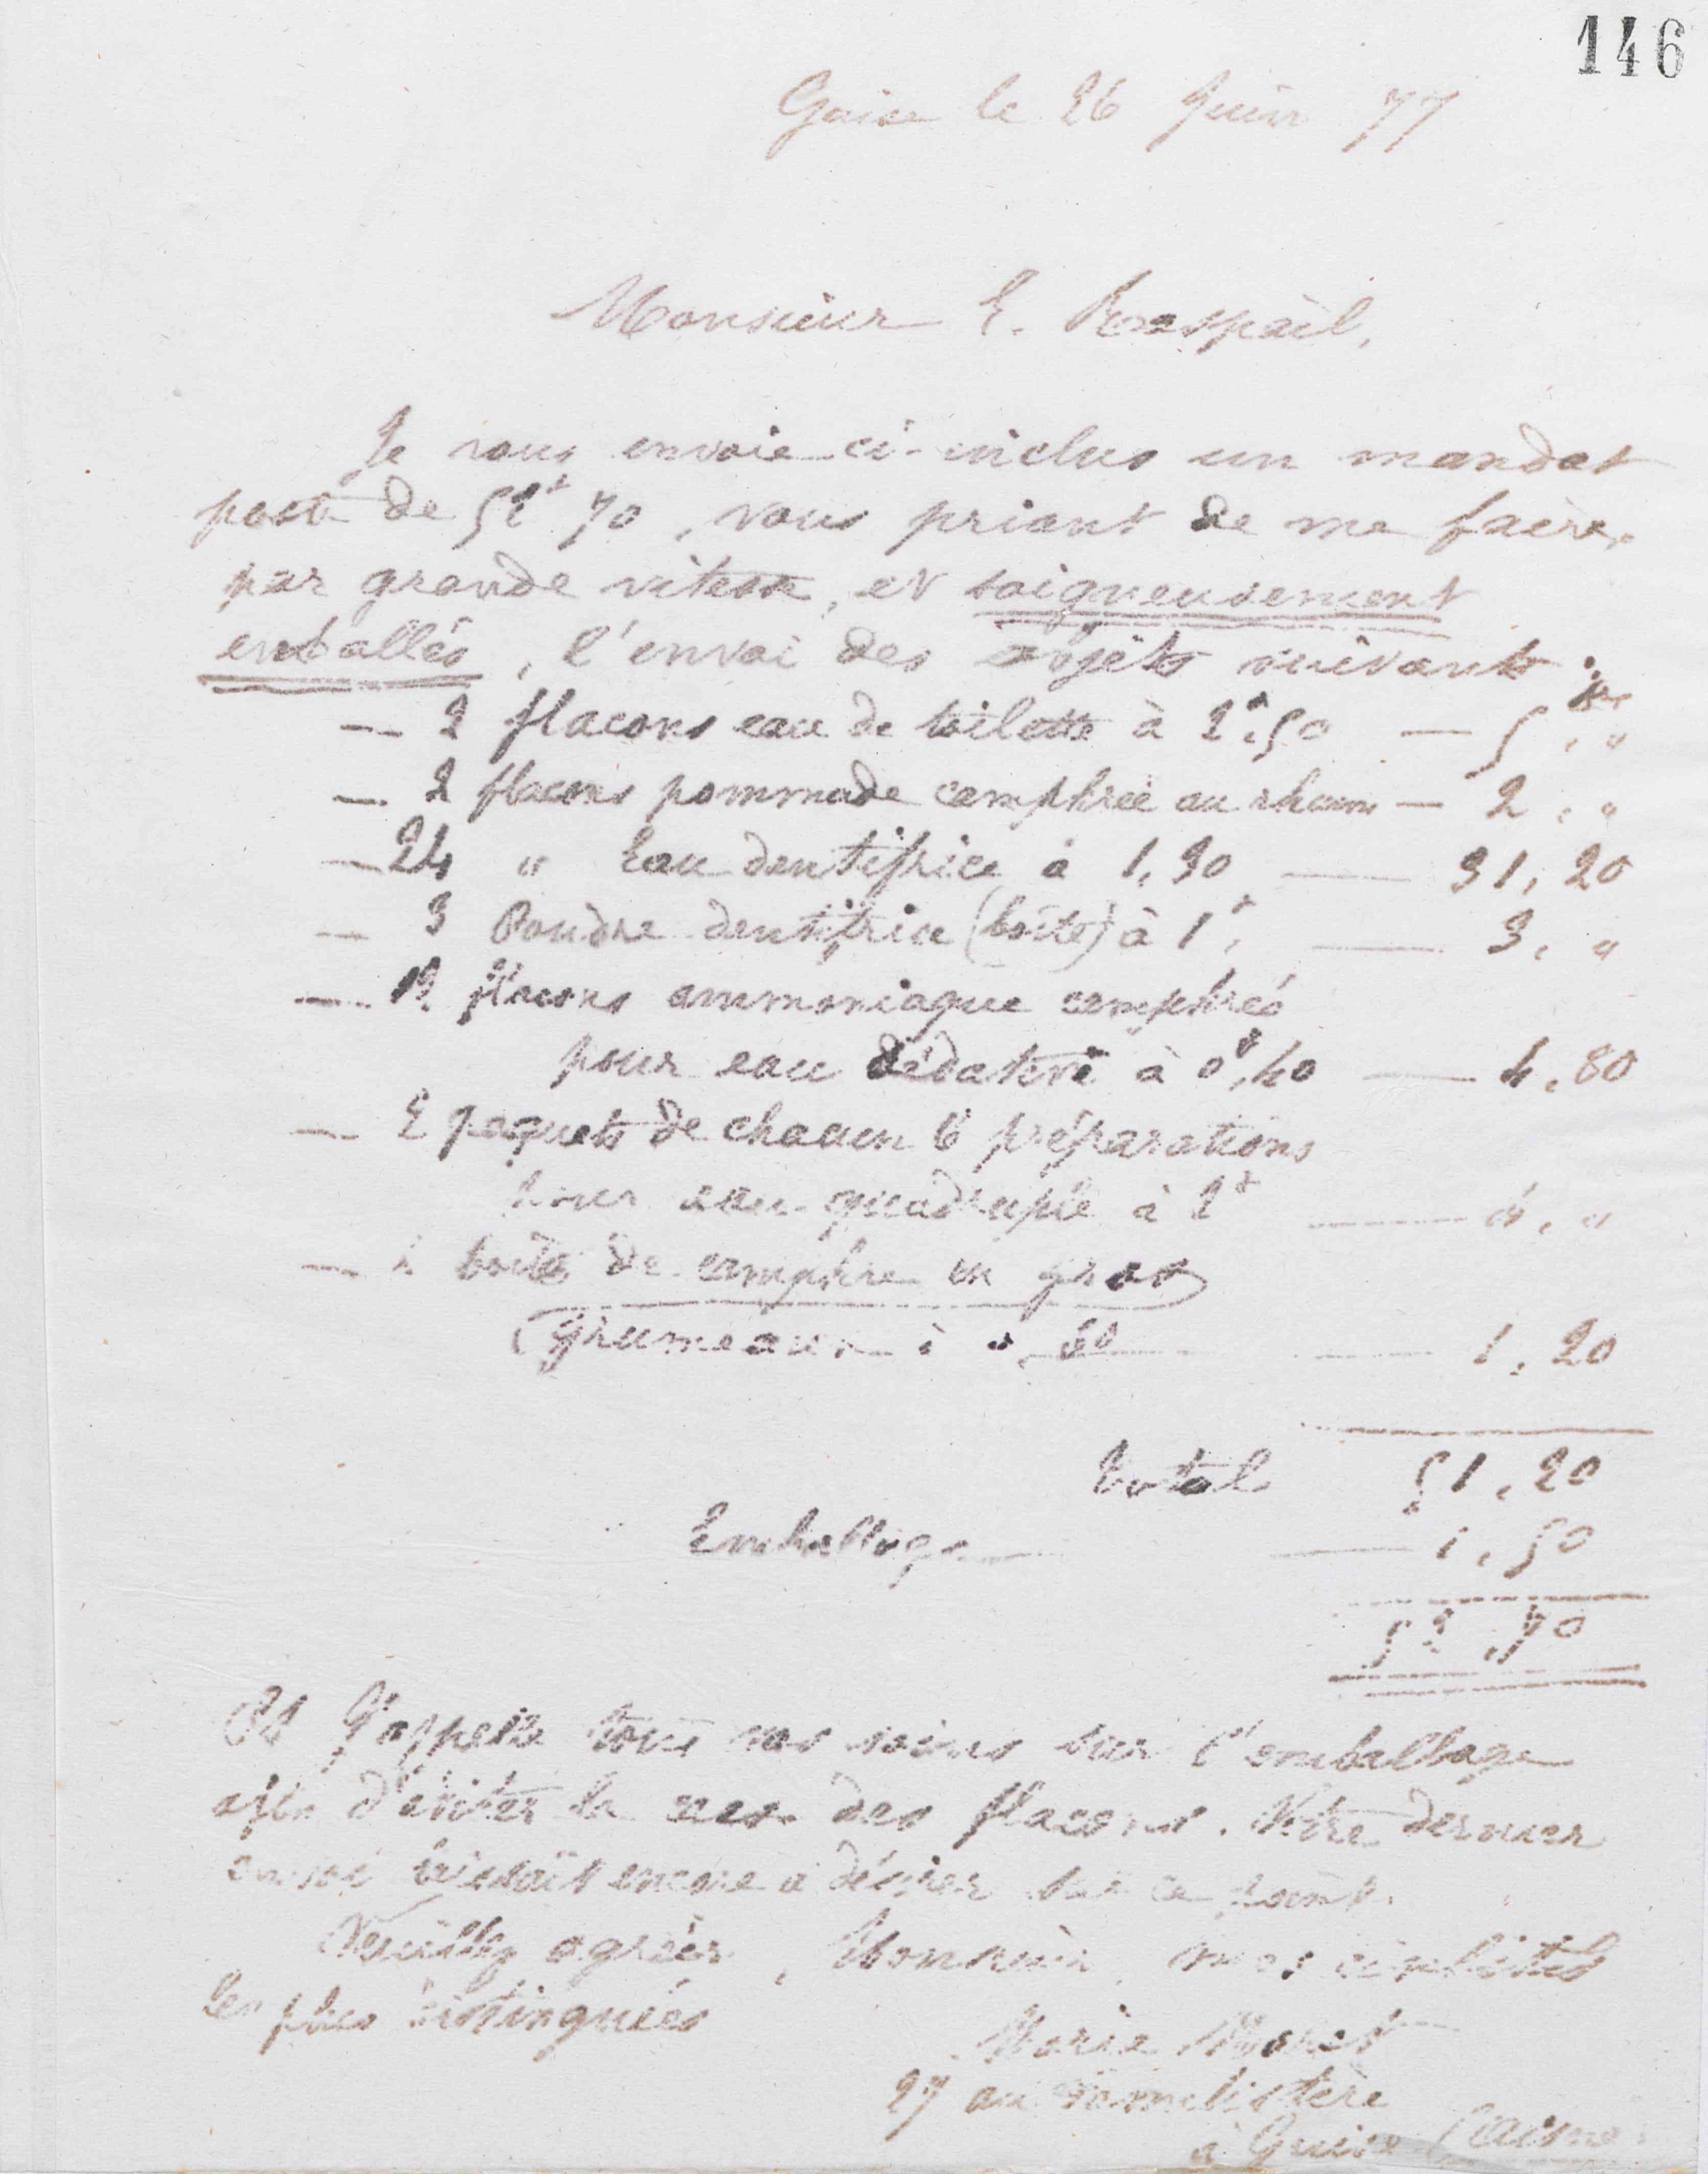 146
Guise le 26 Juin 77
Monsieur E. Raspail,
Je vous envoie ci-inclus un mandat
poste de 52f 70, vous priant de me faire,
par grande vitesse, et soigneusement
emballés, l'envoi des objets suivants :
— 2 flacons eau de toilette à 2f.50 — 5 fr. "
— 2 flacons pommade camphrée au rhum — 2, "
— 24 " Eau dentifrice à 1,30 — 31,20
— 3 Poudre dentifrice (boîte) à 1f, — 3, "
— 12 flacons ammoniaque camphrés
pour eau sédative à 0f,40 — 4,80
— 2 paquets de chacun 6 préparations
pour eau quadruple à 2f — 4, "
— 2 boîtes de camphre en gros
(grumeaux à ", 60 — 1,20
Total 51,20
Emballage — 1,50
52,70
PS J'appelle tous vos soins sur l'emballage
afin d'éviter la des flacons. Votre dernier
envoi laissait encore à désirer sur ce point.
Veuillez agréer, Monsieur, mes civilités
les plus distinguées
Marie Moret
27 au Familistère
à Guise (Aisne)